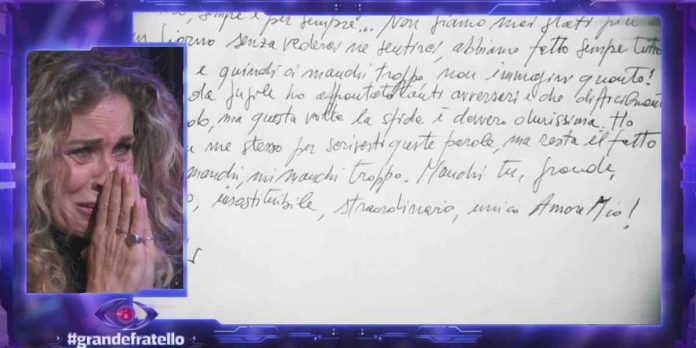 sempre e per sempre... Non siamo mai stati più
un giorno senza vederci ne sentirci, abbiamo fatto sempre tutto
e quindi ci manchi troppo, non immagini quanto!
da ho affrontato tanti avversari e che
ma questa volta la sfida è davvero durissima. Ho
me stesso per scriverti queste parole, ma resta il fatto
manchi, mi manchi troppo. Manchi tu, grande,
insostituibile, straordinario, unico Amore Mio!
#grandefratello